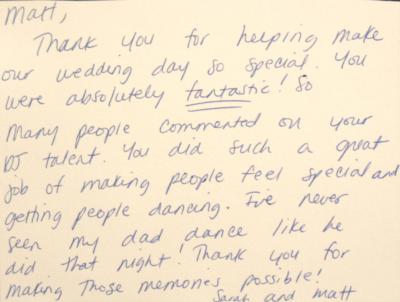 Matt,
Thank you for helping make
our wedding day so special. You
were absolutely fantastic! So
many people commented on your
DJ talent. You did such a great
job of making people feel special and
getting people dancing. I've never
seen my dad dance like he
did that night! Thank you for
making those memories possible!
Sarah and Matt